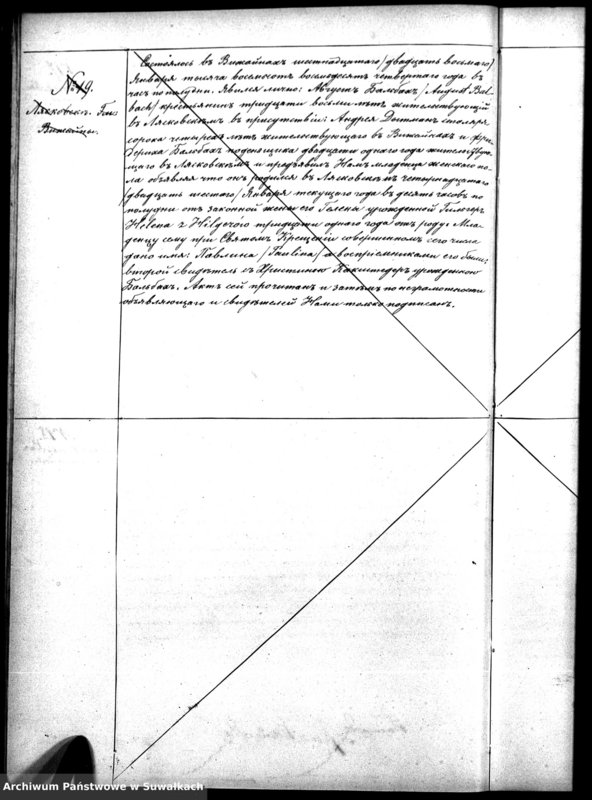 № 19.
Лясковскъ. Гм.
Вижайны.
Состоялось въ Вижайнахъ шестнадцатаго /двадцать восьмаго/
Января тысяча восемьсотъ восемьдесятъ четвертаго года въ
часъ по полудни. Явился лично: Августъ Бальбахъ /August Bal-
bach/ крестьянинъ тридцати восьми лѣтъ жительствующій
въ Лясковскѣмъ въ присутствіи: Андрея столяра
сорока четырехъ лѣтъ жительствующаго въ Вижайнахъ и Фри-
дериха Бальбахъ поденщика двадцати одного года жительствую-
щаго въ Лясковскѣмъ и предъявилъ Намъ младенца женскаго по-
ла объявляя что онъ родился въ Лясковскѣмъ четырнадцатаго
/двадцать шестого/ Января текущаго года въ десять часовъ по
полудни отъ законной жены его Гелены урожденной
Helena z тридцати одного года отъ роду. Мла-
денцу сему при Святомъ Крещеніи совершенномъ сего числа
дано имя: Павлина /Paulina/ а воспріемниками его были:
второй свидѣтель съ Христиною урожденною
Бальбахъ. Актъ сей прочитанъ и затѣмъ по неграмотности
объявляющаго и свидѣтелей Нами только подписанъ.
Archiwum Państwowe w Suwałkach